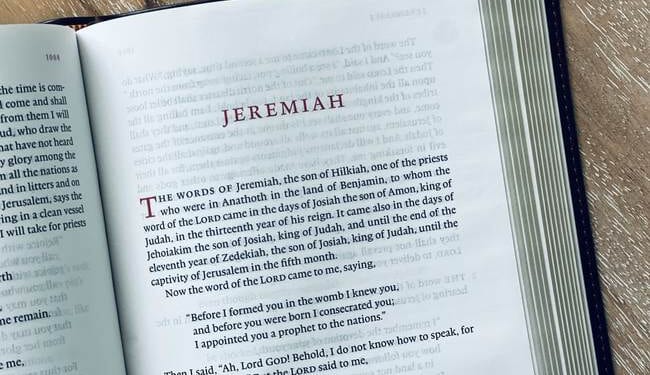 1004
the time is com-
l come and shall
from them I will
ud, who draw the
hat have not heard
y glory among the
m all the nations as
nd in litters and on
Jerusalem, says the
ring in a clean vessel
I will take for priests
rth
me remain.
e me,
JEREMIAH
THE WORDS OF Jeremiah, the son of Hilkiah, one of the priests
who were in Anathoth in the land of Benjamin, to whom the
word of the LORD came in the days of Josiah the son of Amon, king of
Judah, in the thirteenth year of his reign. It came also in the days of
Jehoiakim the son of Josiah, king of Judah, and until the end of the
eleventh year of Zedekiah, the son of Josiah, king of Judah, until the
captivity of Jerusalem in the fifth month.
Now the word of the LORD came to me, saying,
"Before I formed you in the womb I knew you,
and before you were born I consecrated you;
I appointed you a prophet to the nations."
Then I said, "Ah, Lord GOD! Behold, I do not know how to speak, for
the LORD said to me,